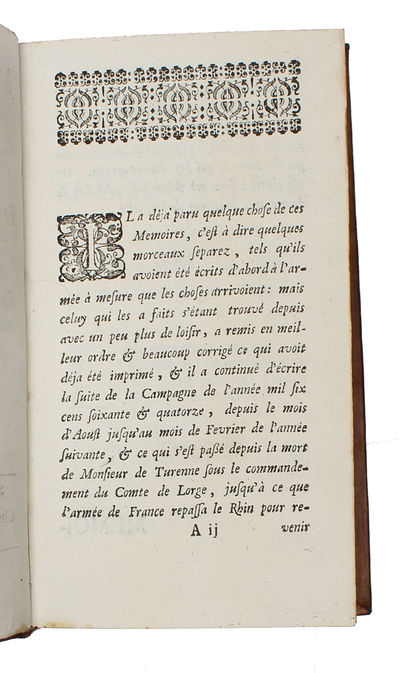 IL a déjà paru quelque chose de ces
Memoires, c'est à dire quelques
morceaux separez, tels qu'ils
avoient été écrits d'abord à l'ar-
mée à mesure que les choses arrivoient : mais
celuy qui les a faits s'étant trouvé depuis
avec un peu plus de loisir, a remis en meil-
leur ordre & beaucoup corrigé ce qui avoit
déja été imprimé, & il a continué d'écrire
la suite de la Campagne de l'année mil six
cens soixante & quatorze, depuis le mois
d'Aoust jusqu'au mois de Fevrier de l'année
suivante, & ce qui s'est passé depuis la mort
de Monsieur de Turenne sous le commande-
ment du Comte de Lorge, jusqu'à ce que
l'armée de France repassa le Rhin pour re-
A ij venir